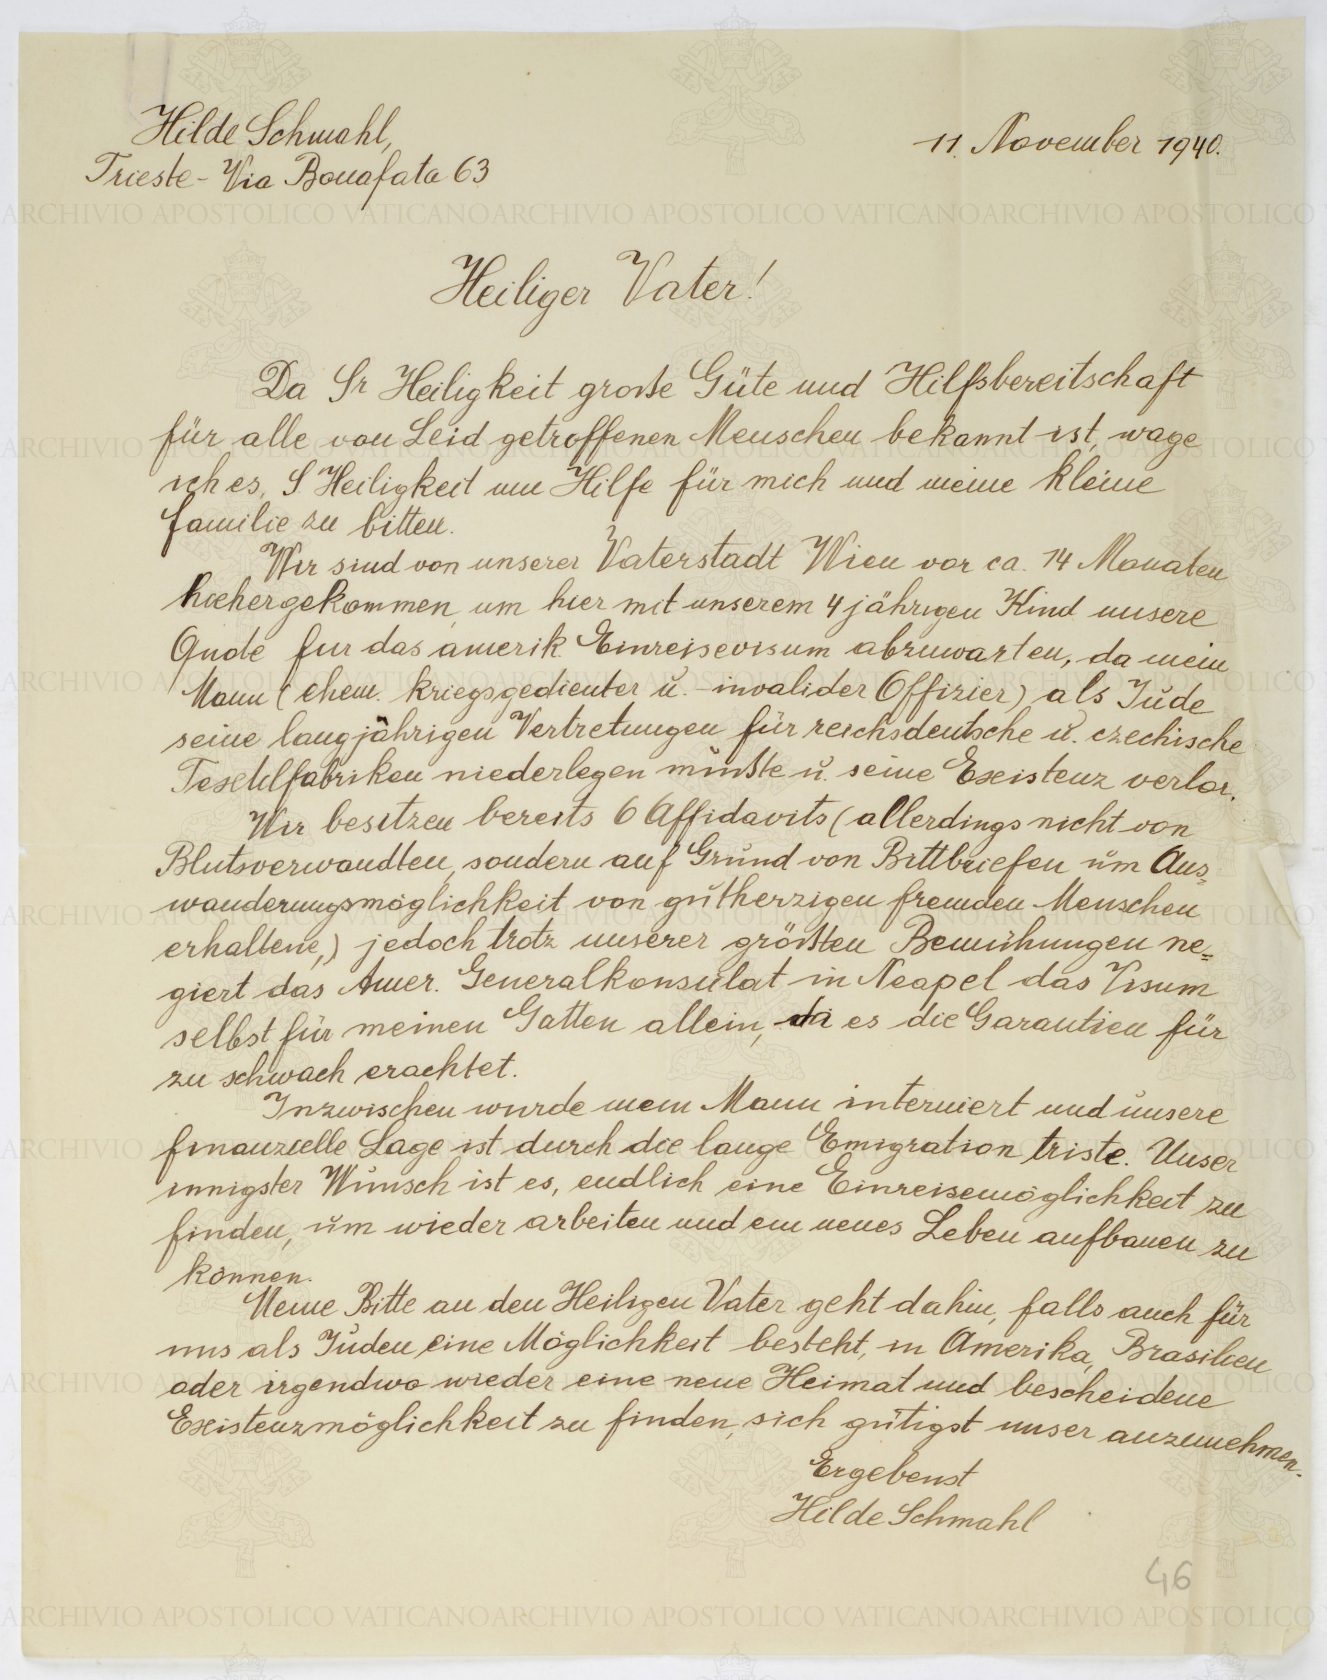 Hilde Schmahl,
Trieste - Via Bonafata 63
11. November 1940.
Heiliger Vater!
Da Sr Heiligkeit große Güte und Hilfsbereitschaft
für alle von Leid getroffenen Menschen bekannt ist, wage
ich es, S Heiligkeit um Hilfe für mich und meine kleine
Familie zu bitten.
Wir sind von unserer Vaterstadt Wien vor ca. 14 Monaten
hiehergekommen um hier mit unserem 4 jährigen Kind unsere
Quote für das amerik Einreisevisum abzuwarten, da mein
Mann (ehem. kriegsgedienter u. -invalider Offizier) als Jude
seine langjährigen Vertretungen für reichsdeutsche u. czechische
Textilfabriken niederlegen mußte u. seine Existenz verlor.
Wir besitzen bereits 6 Affidavits (allerdings nicht von
Blutsverwandten, sondern auf Grund von Bittbriefen um Aus=
wanderungsmöglichkeit von gutherzigen fremden Menschen
erhaltene,) jedoch trotz unserer größten Bemühungen ne=
giert das Amer. Generalkonsulat in Neapel das Visum
selbst für meinen Gatten allein, da es die Garantien für
zu schwach erachtet.
Inzwischen wurde mein Mann interniert und unsere
finanzielle Lage ist durch die lange Emigration triste. Unser
innigster Wunsch ist es, endlich eine Einreisemöglichkeit zu
finden, um wieder arbeiten und ein neues Leben aufbauen zu
können.
Meine Bitte an den Heiligen Vater geht dahin, falls auch für
uns als Juden eine Möglichkeit besteht, in Amerika, Brasilien
oder irgendwo wieder eine neue Heimat und bescheidene
Existenzmöglichkeit zu finden, sich gütigst unser anzunehmen.
Ergebenst
Hilde Schmahl
46
ARCHIVIO APOSTOLICO VATICANO